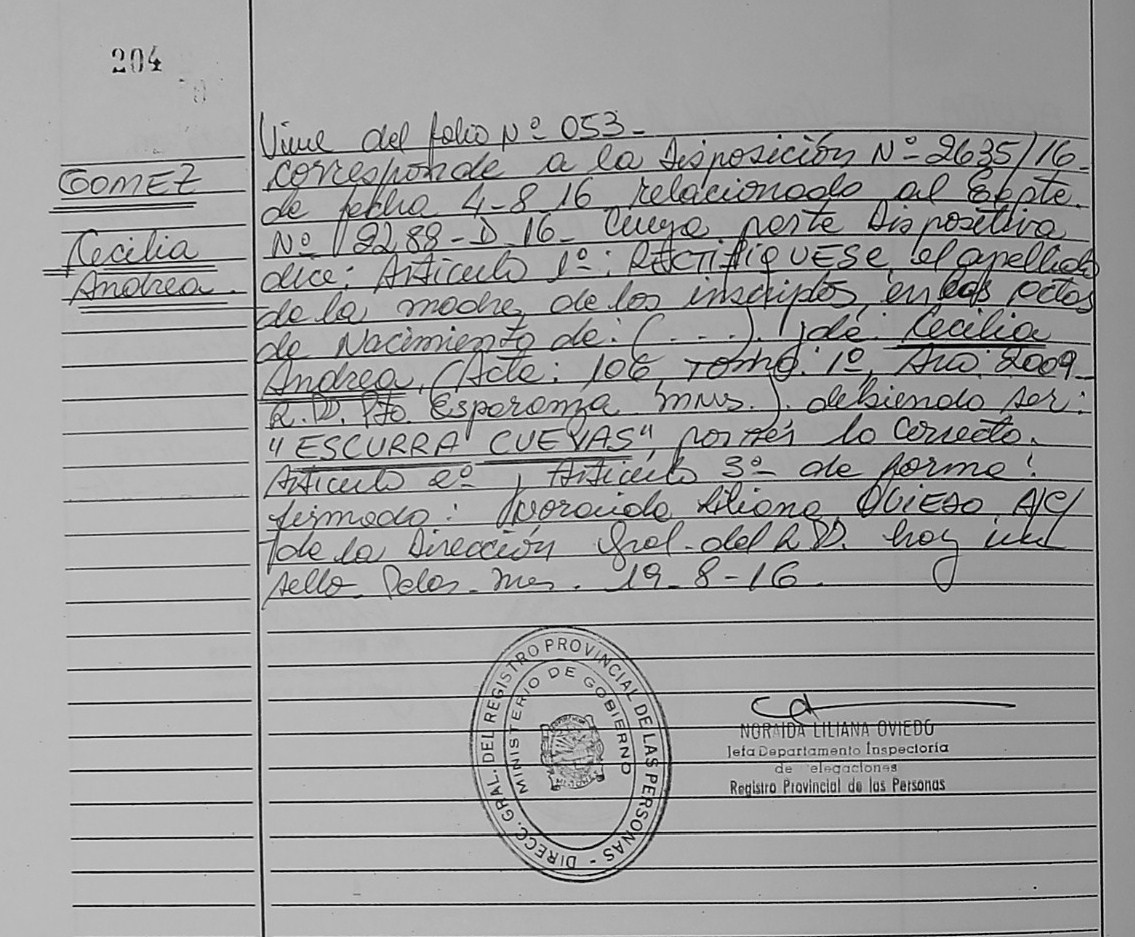 204
GOMEZ
Cecilia
Andrea.
Viene del folio Nº 053-
corresponde a la disposición Nº 2635/16-
de fecha 4-8 16 relacionado al Expte.
Nº 2288-D 16- Cuya parte dispositiva
dice: Articulo 1º: RECTIFIQUESE, el apellido
de la madre de los inscriptos, en las actas
de Nacimiento de: (....). de: Cecilia
Andrea. (Acta: 106, Tomo: 1º, Año: 2009-
R.D. Pto Esperanza, Mnes.). debiendo ser:
"ESCURRA CUEVAS", por ser lo correcto.
Articulo 2º y Articulo 3º de forma:
firmado: Noraida Liliana OVIEDO A/C
de la Dirección Gral. del R.P. hay un
sello. Pdas. Mnes. 19-8-16.
DIRECC. GRAL. DEL REGISTRO PROVINCIAL DE LAS PERSONAS -
MINISTERIO DE GOBIERNO
NORAIDA LILIANA OVIEDO
Jefa Departamento Inspectoria
de elegaciones
Registro Provincial de las Personas